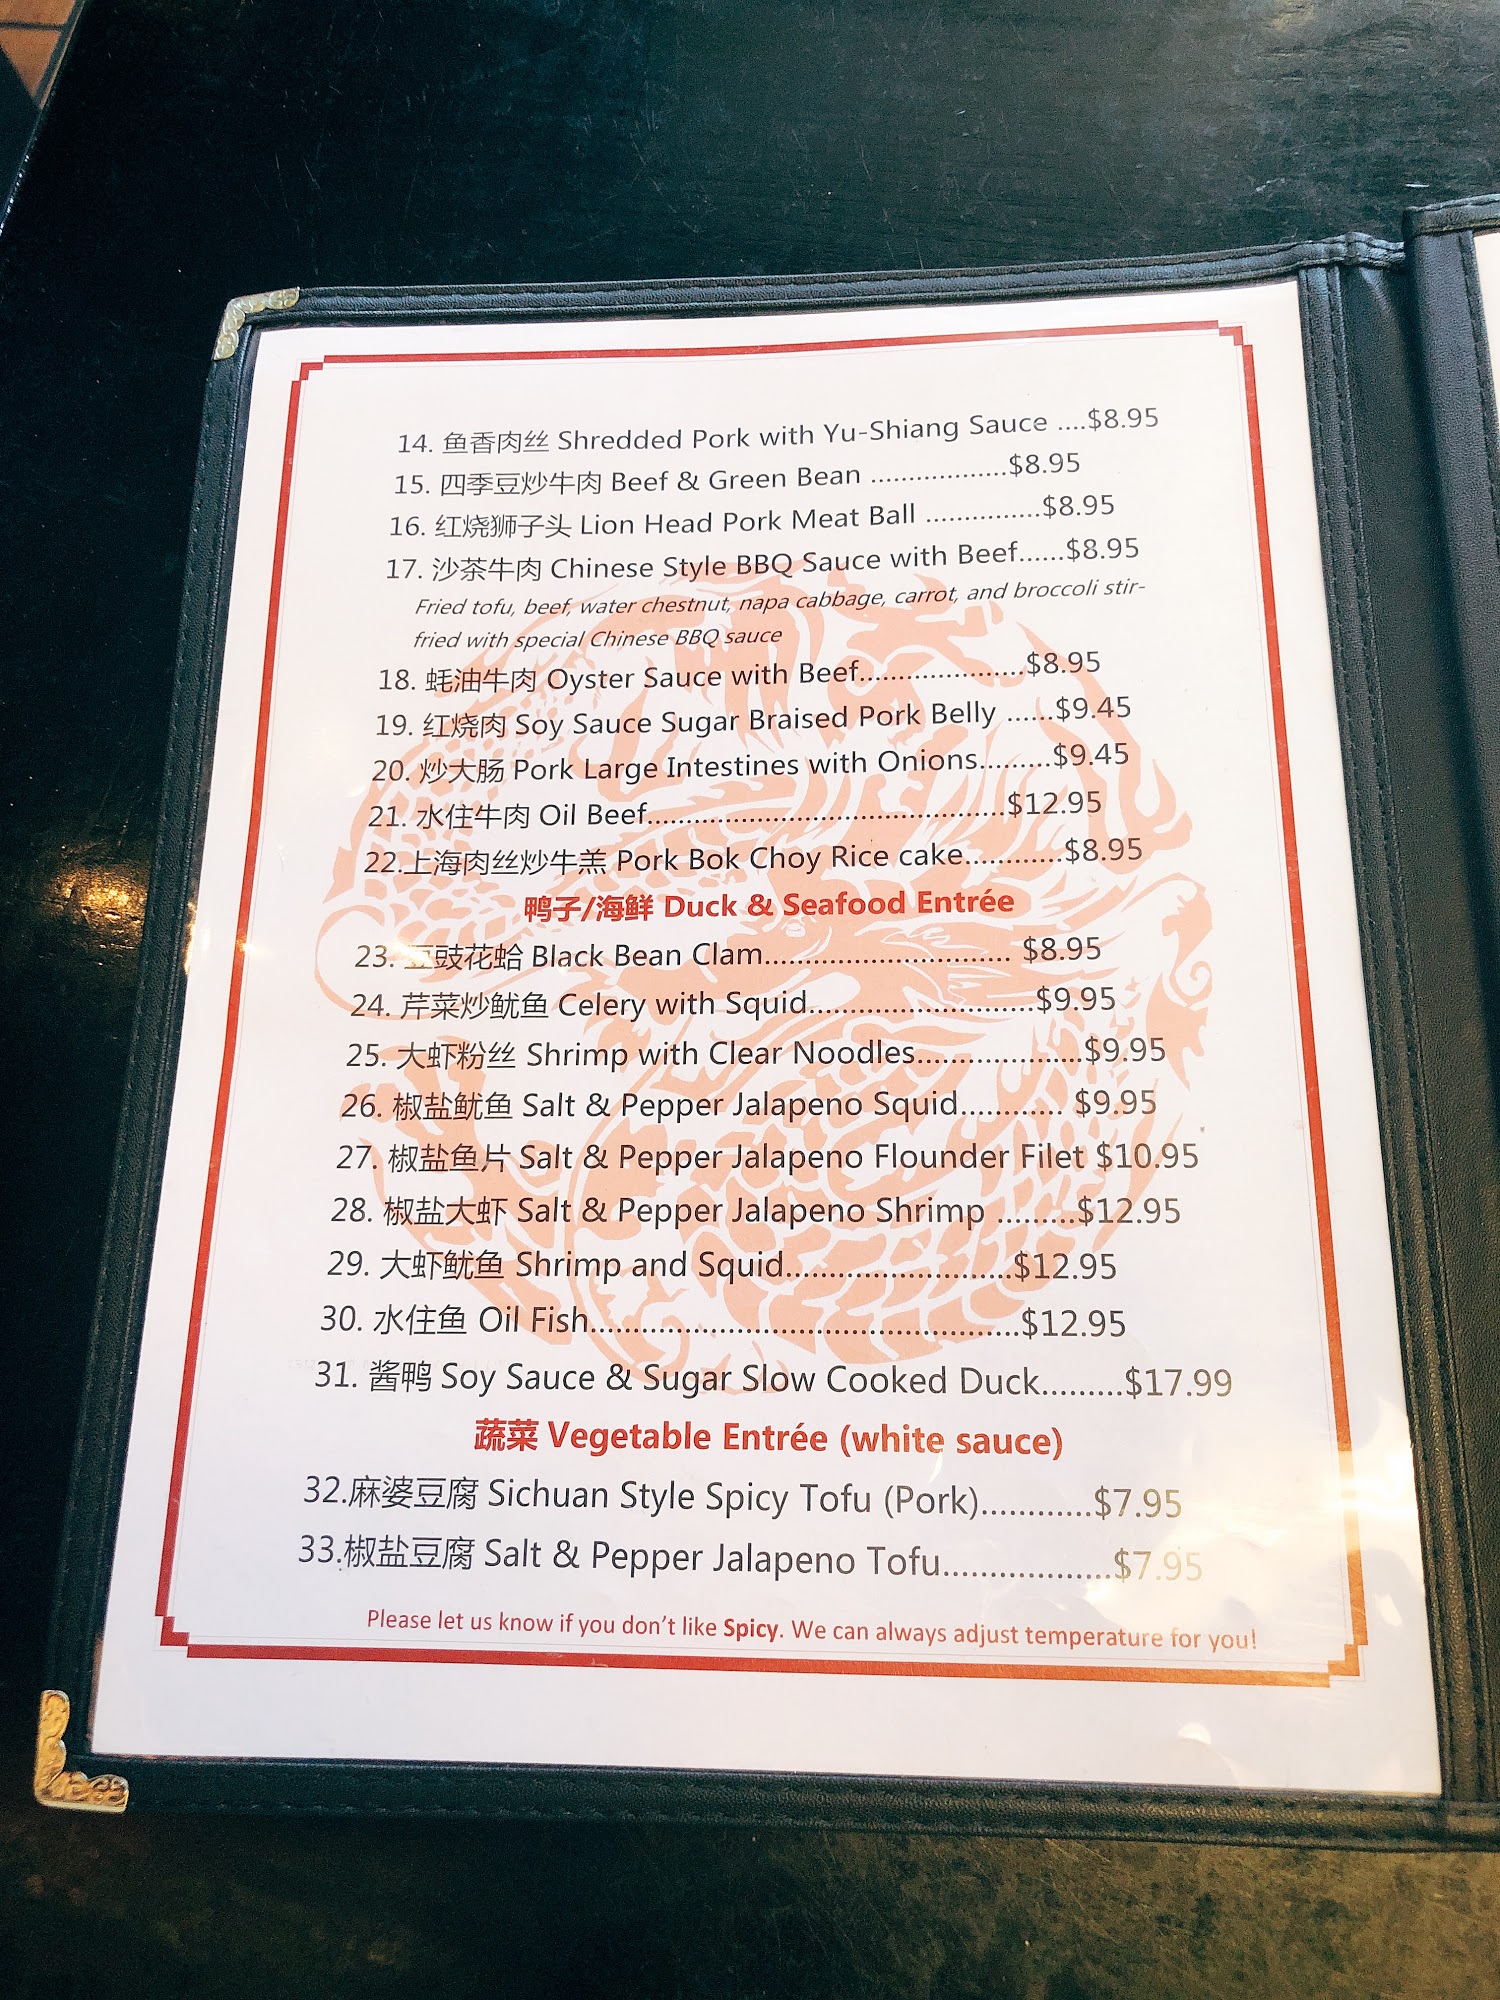 14. 鱼香肉丝 Shredded Pork with Yu-Shiang Sauce ....$8.95
15. 四季豆炒牛肉 Beef & Green Bean ..................$8.95
16. 红烧狮子头 Lion Head Pork Meat Ball ...............$8.95
17. 沙茶牛肉 Chinese Style BBQ Sauce with Beef......$8.95
Fried tofu, beef, water chestnut, napa cabbage, carrot, and broccoli stir-
fried with special Chinese BBQ sauce
18. 蚝油牛肉 Oyster Sauce with Beef.....................$8.95
19. 红烧肉 Soy Sauce Sugar Braised Pork Belly ......$9.45
20. 炒大肠 Pork Large Intestines with Onions.........$9.45
21. 水住牛肉 Oil Beef.............................................$12.95
22.上海肉丝炒牛羔 Pork Bok Choy Rice cake............$8.95
鸭子/海鲜 Duck & Seafood Entrée
23. 豆豉花蛤 Black Bean Clam............................... $8.95
24. 芹菜炒鱿鱼 Celery with Squid............................$9.95
25. 大虾粉丝 Shrimp with Clear Noodles....................$9.95
26. 椒盐鱿鱼 Salt & Pepper Jalapeno Squid............ $9.95
27. 椒盐鱼片 Salt & Pepper Jalapeno Flounder Filet $10.95
28. 椒盐大虾 Salt & Pepper Jalapeno Shrimp .........$12.95
29. 大虾鱿鱼 Shrimp and Squid..........................$12.95
30. 水住鱼 Oil Fish.................................................$12.95
31. 酱鸭 Soy Sauce & Sugar Slow Cooked Duck.........$17.99
蔬菜 Vegetable Entrée (white sauce)
32.麻婆豆腐 Sichuan Style Spicy Tofu (Pork)............$7.95
33.椒盐豆腐 Salt & Pepper Jalapeno Tofu...................$7.95
Please let us know if you don't like Spicy. We can always adjust temperature for you!